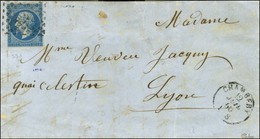 Madame
Mme Veuve Jacquy
quai Celestin
Lyon
CHAMBERY